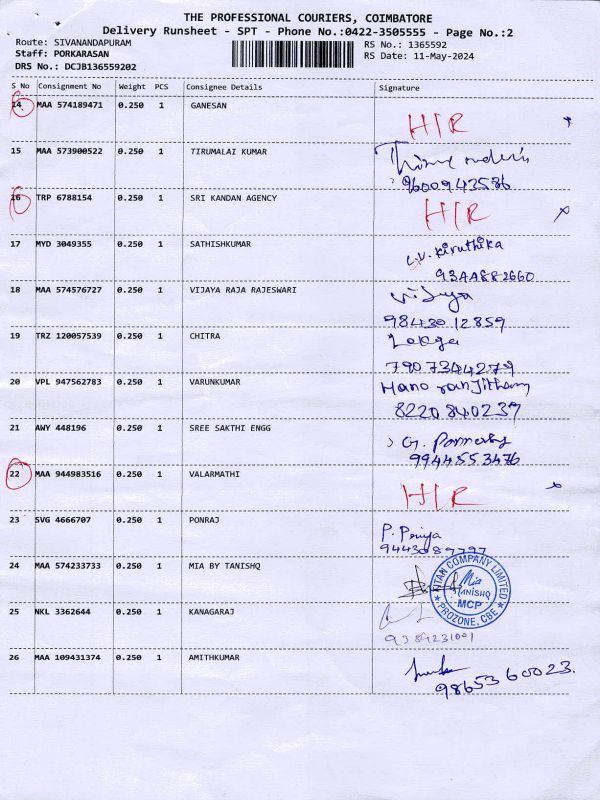 THE PROFESSIONAL COURIERS, COIMBATORE
Delivery Runsheet - SPT - Phone No.:0422-3505555 - Page No.:2
Route: SIVANANDAPURAM
RS No.: 1365592
Staff: PORKARASAN
RS Date: 11-May-2024
DRS No.: DCJB136559202
S No Consignment No Weight PCS Consignee Details Signature
14 MAA 574189471 0.250 1 GANESAN
H/R
15 MAA 573900522 0.250 1 TIRUMALAI KUMAR
9600943586
16 TRP 6788154 0.250 1 SRI KANDAN AGENCY
H/R
17 MYD 3049355 0.250 1 SATHISHKUMAR
Kiruthika
18 MAA 574576727 0.250 1 VIJAYA RAJA RAJESWARI
Vijaya
9843012859
19 TRZ 120057539 0.250 1 CHITRA
7907344279
20 VPL 947562783 0.250 1 VARUNKUMAR
8220840239
21 AWY 448196 0.250 1 SREE SAKTHI ENGG
9944553476
22 MAA 944983516 0.250 1 VALARMATHI
H/R
23 SVG 4666707 0.250 1 PONRAJ
P. Priya
24 MAA 574233733 0.250 1 MIA BY TANISHQ
TITAN COMPANY LIMITED
Mia
TANISHQ
MCP
PROZONE, CBE
25 NKL 3362644 0.250 1 KANAGARAJ
9384231001
26 MAA 109431374 0.250 1 AMITHKUMAR
9865360023.